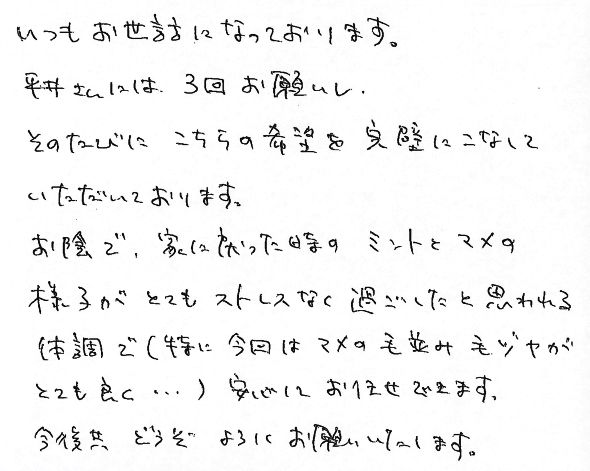 いつもお世話になっております。
平井さんには、3回お願いし、
そのたびに こちらの希望を 完璧にこなして
いただいております。
お陰で、家に戻った時の ミントとマメの
様子が とても ストレスなく 過ごしたと 思われる
体調で(特に 今回は マメの 毛並み 毛ヅヤが
とても良く…) 安心して お任せできます。
今後共 どうぞ よろしく お願いいたします。